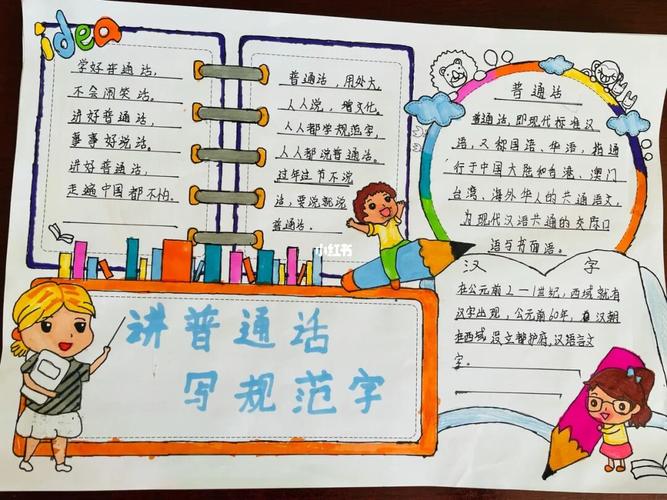 idea
学好普通话,
不会闹笑话。
讲好普通话,
事事好说话。
讲好普通话,
走遍中国都不怕。
普通话,用处大。
人人说,增文化。
人人都学规范字,
人人都说普通话。
过年过节不说
话,要说就说
普通话。
普通话
普通话,即现代标准汉
语,又称国语、华语,指通
行于中国大陆和香港、澳门
台湾、海外华人的共通语文,
为现代汉语共通的交际口
语与书面语。
小红书
汉字
在公元前2—1世纪,西域就有
汉字出现,公元前60年,汉朝
在西域设立都护府,汉语言文
字。
讲普通话
写规范字